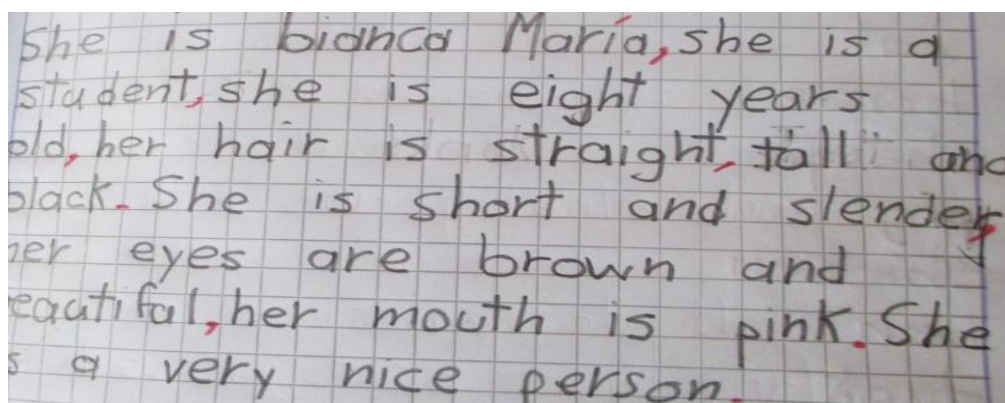 She is bianca María, she is a
student, she is eight years
old, her hair is straight, tall and
black. She is short and slender,
her eyes are brown and
eautiful, her mouth is pink. She
s a very nice person.